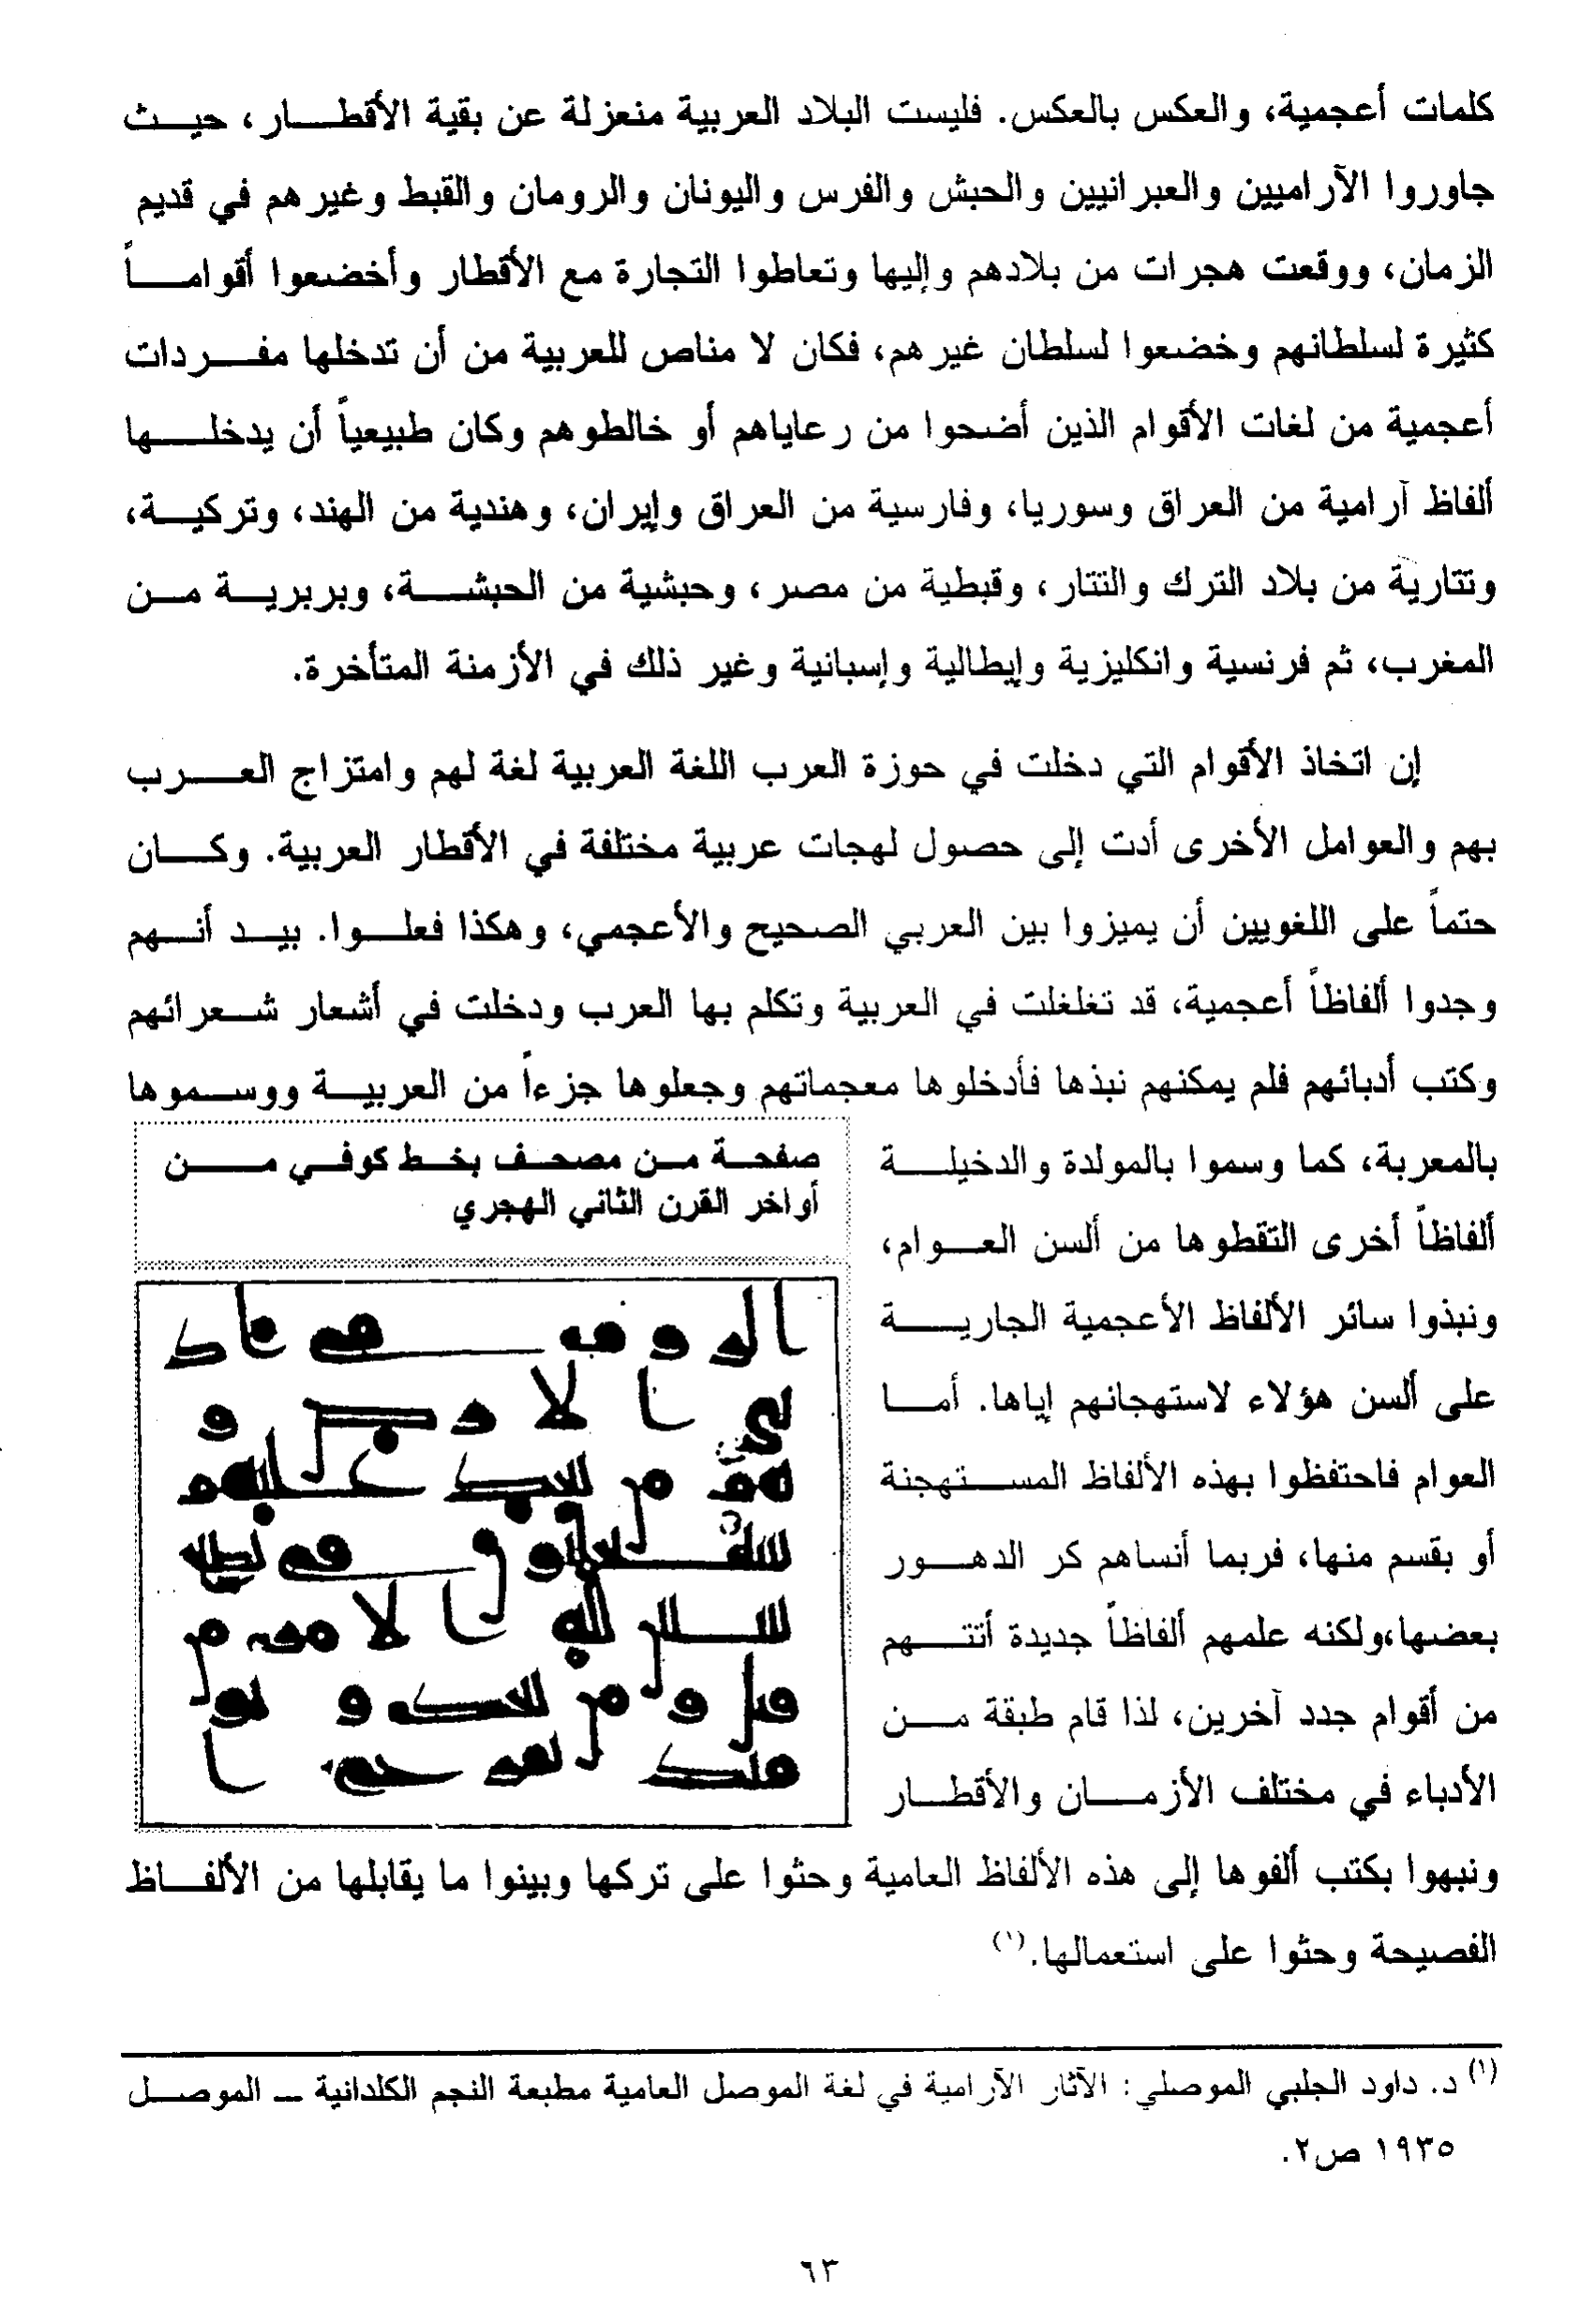 كلمات أعجمية، والعكس بالعكس. فليست البلاد العربية منعزلة عن بقية الأقطار، حيث
جاوروا الآراميين والعبرانيين والحبش والفرس واليونان والرومان والقبط وغيرهم في قديم
الزمان، ووقعت هجرات من بلادهم وإليها وتعاطوا التجارة مع الأقطار وأخضعوا أقواماً
كثيرة لسلطانهم وخضعوا لسلطان غيرهم، فكان لا مناص للعربية من أن تدخلها مفردات
أعجمية من لغات الأقوام الذين أضحوا من رعاياهم أو خالطوهم وكان طبيعياً أن يدخلها
ألفاظ آرامية من العراق وسوريا، وفارسية من العراق وإيران، وهندية من الهند، وتركية،
وتتارية من بلاد الترك والتتار، وقبطية من مصر، وحبشية من الحبشة، وبربرية من
المغرب، ثم فرنسية وانكليزية وإيطالية وإسبانية وغير ذلك في الأزمنة المتأخرة.
إن اتخاذ الأقوام التي دخلت في حوزة العرب اللغة العربية لغة لهم وامتزاج العرب
بهم والعوامل الأخرى أدت إلى حصول لهجات عربية مختلفة في الأقطار العربية. وكان
حتماً على اللغويين أن يميزوا بين العربي الصحيح والأعجمي، وهكذا فعلوا. بيد أنهم
وجدوا ألفاظاً أعجمية، قد تغلغلت في العربية وتكلم بها العرب ودخلت في أشعار شعرائهم
وكتب أدبائهم فلم يمكنهم نبذها فأدخلوها معجماتهم وجعلوها جزءاً من العربية ووسموها
بالمعربة، كما وسموا بالمولدة والدخيلة
ألفاظاً أخرى التقطوها من ألسن العوام،
ونبذوا سائر الألفاظ الأعجمية الجارية
على ألسن هؤلاء لاستهجانهم إياها. أما
العوام فاحتفظوا بهذه الألفاظ المستهجنة
أو بقسم منها، فربما أنساهم كر الدهور
بعضها،ولكنه علمهم ألفاظاً جديدة أتتهم
من أقوام جدد آخرين، لذا قام طبقة من
الأدباء في مختلف الأزمان والأقطار
صفحة من مصحف بخط كوفي من
أواخر القرن الثاني الهجري
ونبهوا بكتب ألفوها إلى هذه الألفاظ العامية وحثوا على تركها وبينوا ما يقابلها من الألفاظ
الفصيحة وحثوا على استعمالها.(١)
(١) د. داود الجلبي الموصلي: الآثار الآرامية في لغة الموصل العامية مطبعة النجم الكلدانية ــ الموصل
١٩٣٥ ص٢.
٦٣